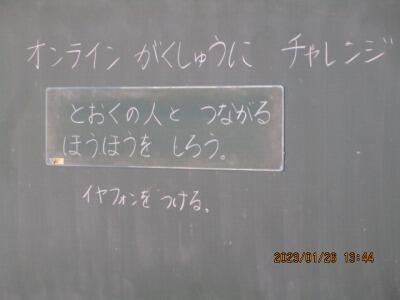 オンライン がくしゅうに チャレンジ
とおくの人と つながる
ほうほうを しろう。
イヤフォンを つける。
2023/01/26 13:44